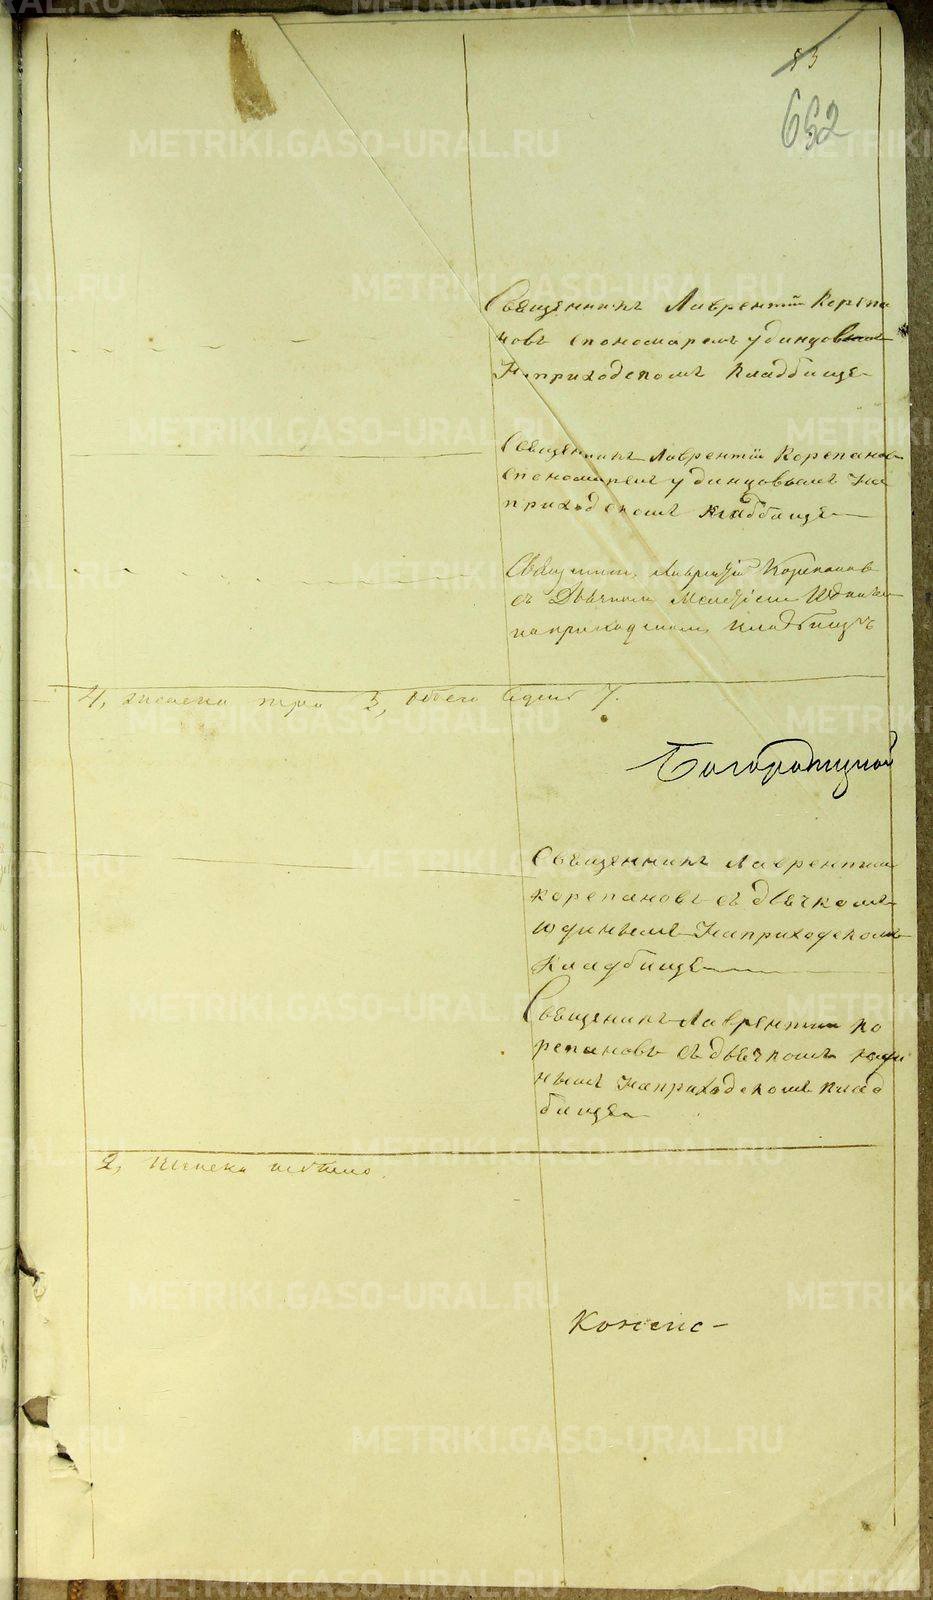 83
652
Священникъ Лаврентій Корепа
новъ спономаремъ удинцовымъ
На приходскомъ кладбище
Священникъ Лаврентій Корепанов
спономаремъ удинцовымъ на
приходскомъ кладбище
Священник Лаврентій Корепанов
съ Дьячком Юдиным
на приходском кладбищѣ
4, женска три 3, обоего 7.
Священникъ Лаврентии
Корепановъ съ дьячкомъ
юдинымъ На приходскомъ
Кладбище
Священикъ Лаврентии Ко
репановъ съ дьячкомъ юди
нымъ На приходскомъ клад
бище
2, женска небыло.
METRIKI.GASO-URAL.RU